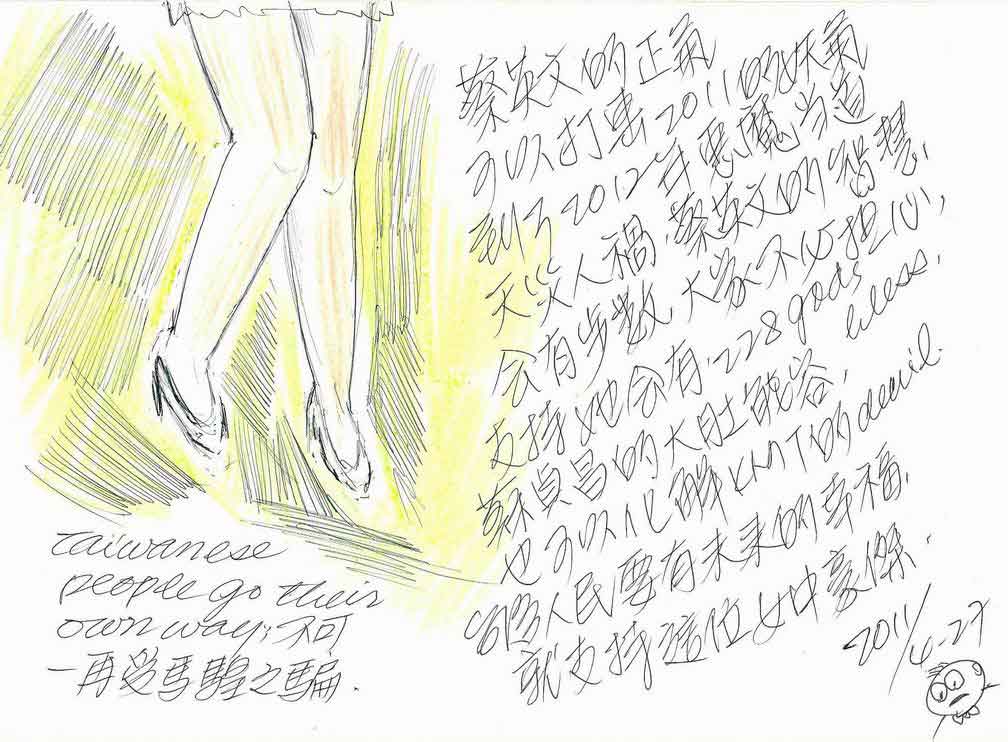 蔡英文的正氣
可以打击2011的妖氣
到了2012年惡魔当道
天災人禍.蔡英文的智慧,
会有步数,大家不必担心,
支持她会有228gods bless,
蘇貞昌的大肚能容,
也可以化解KMT的devil.
台湾人民要有未来的幸福,
就支持這位女中豪傑.
2011/4-27
taiwanese
people go their
own way;不可
一再受馬之騙.